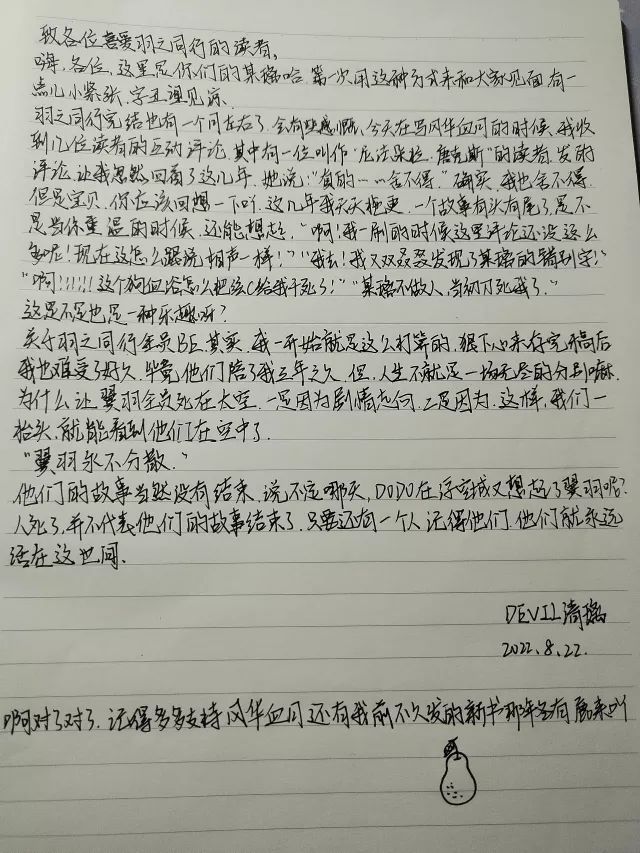 致各位喜爱羽之同行的读者,
嗨,各位,这里是你们的某璃哈.第一次用这种方式来和大家见面有一
点儿小紧张,字丑谨见谅.
羽之同行完结也有一个月左右了.全有些感慨.今天在写风华血月的时候,我收
到几位读者的互动评论,其中有一位叫作"厄法朱粒.唐克斯"的读者发的
评论,让我忽然回首了这几年.她说:"真的……舍不得."确实,我也舍不得
但是宝贝,你应该回想一下吖.这几年我天天拖更.一个故事有头有尾了,是不
是当你重温的时候.还能想起."啊!我一刷的时候这里评论还没这么
多呢!现在这怎么跟说相声一样!""我去!我又双叒叕发现了某璃的错别字!"
"啊!!!!!!这个狗血浴怎么把该C给我干死了!""某璃不做人,当初刀死我了."
这是不是也是一种乐趣呀?
关于羽之同行全员BE.其实.我一开始就是这么打算的,狠下心来存完稿后
我也难受了好久.毕竟他们陪了我三年之久.但,人生不就是一场无尽的分别嘛.
为什么让翼羽全员死在太空.一是因为剧情走向.二是因为.这样,我们一
抬头,就能看到他们在空中了.
"翼羽永不分散."
他们的故事当然没有结束.说不定哪天,DODO在浮空城又想起了翼羽呢?
人死了,并不代表他们的故事结束了.只要还有一个人记得他们.他们就永远
活在这世间.
DEVIL清璃
2022.8.22.
啊对了对了.记得多多支持风华血月还有我前不久发的新书那年 有 来吖